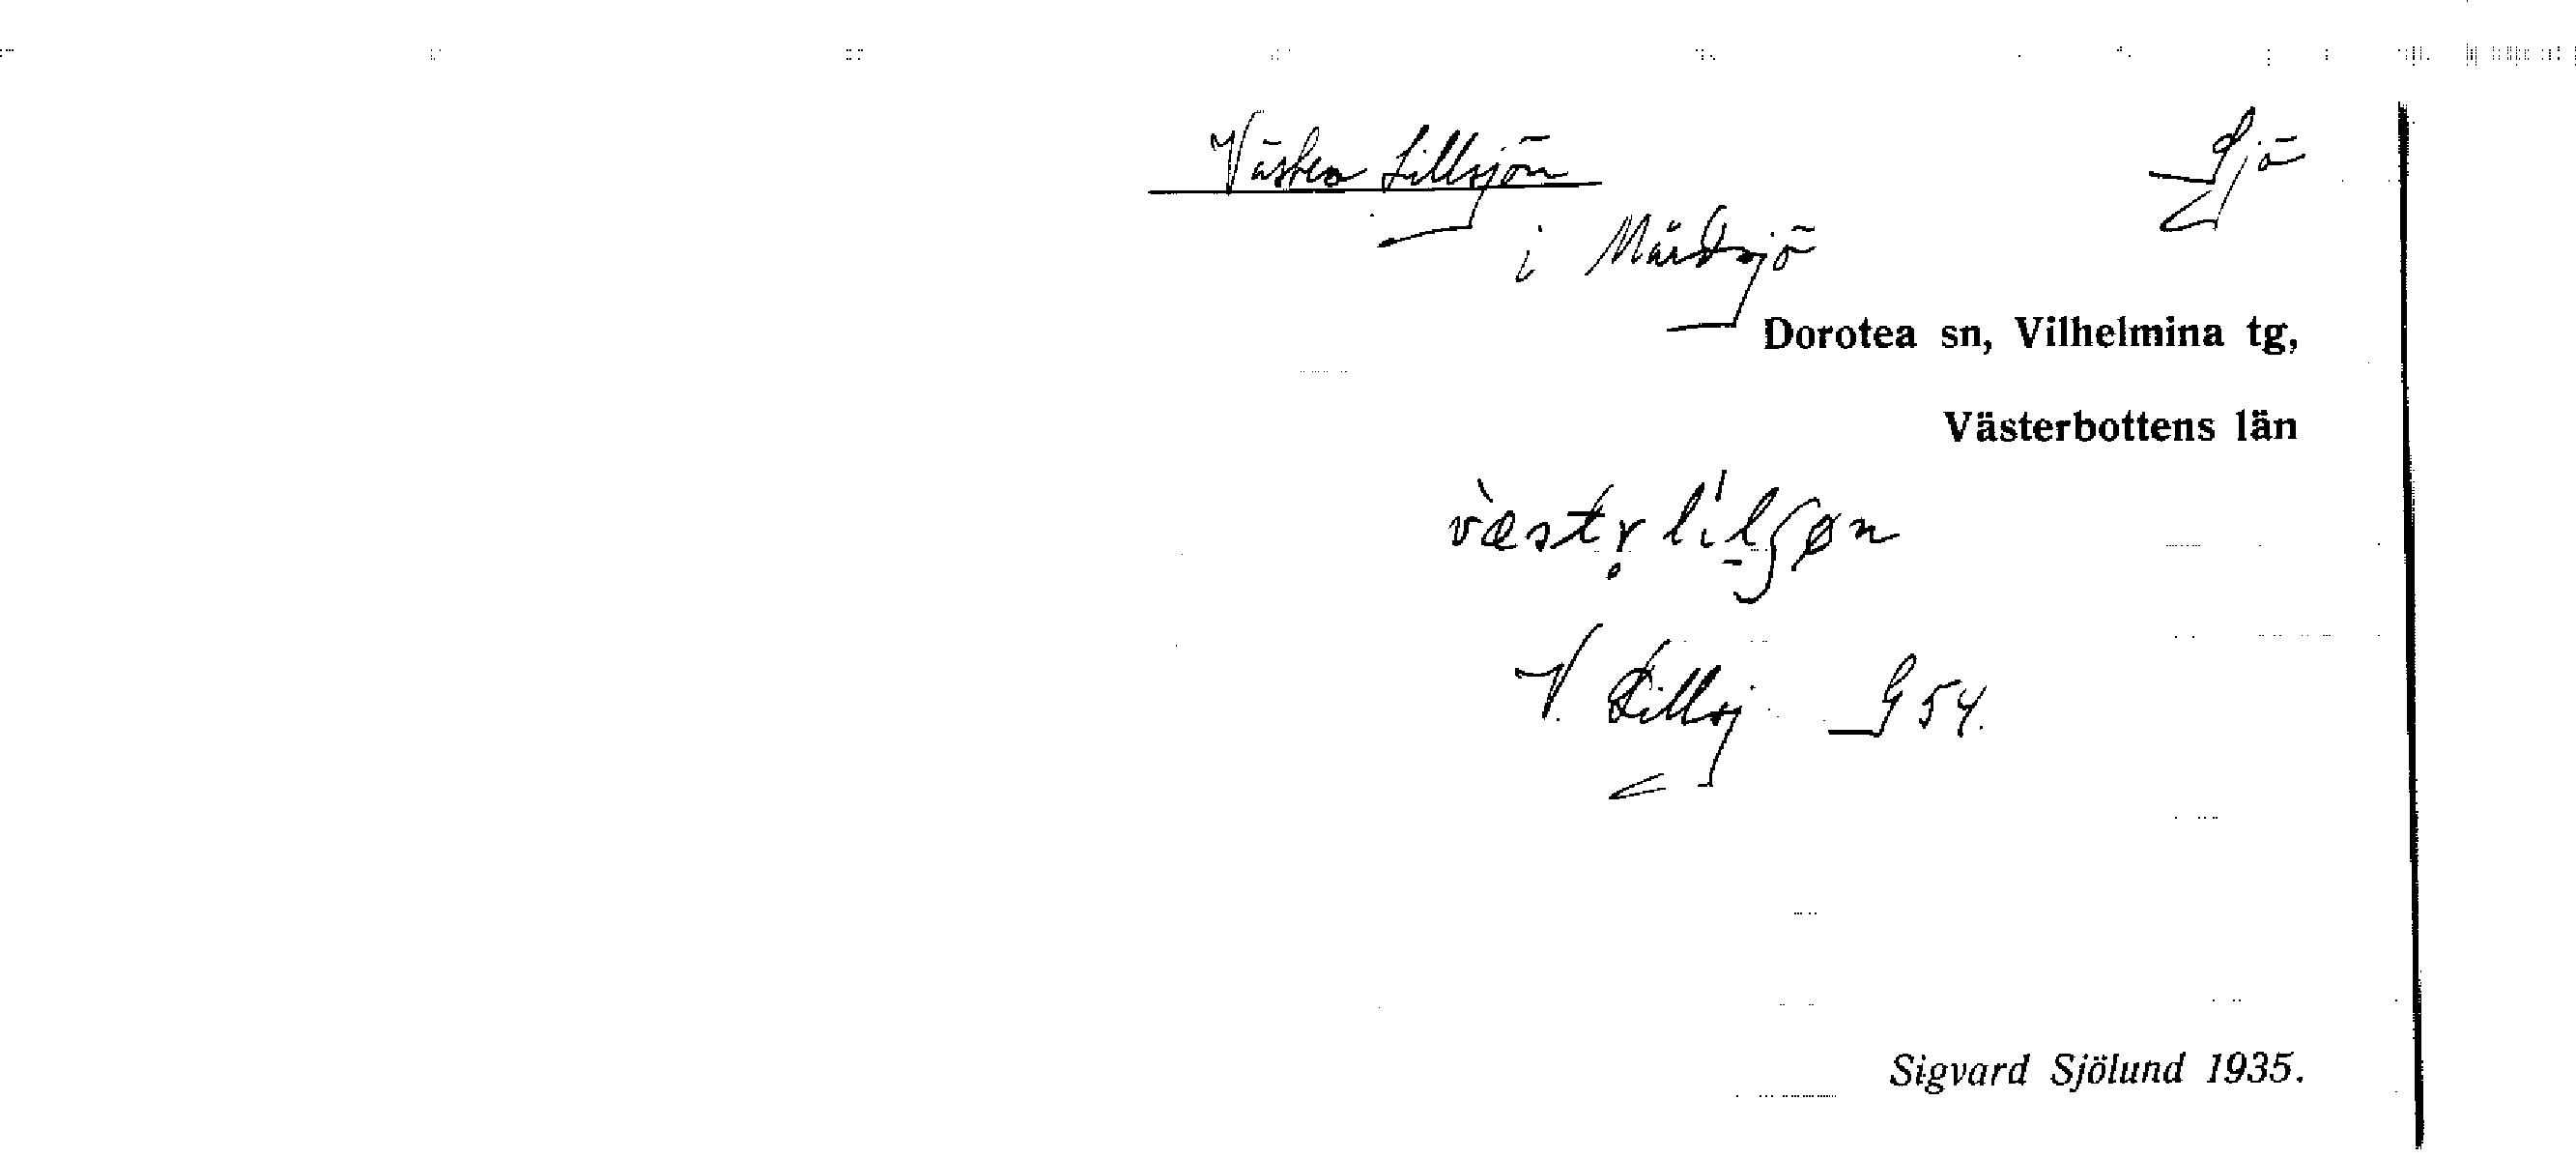 Västra Lillsjön Sjö
i Mårdsjö
Dorotea sn, Vilhelmina tg,
Västerbottens län
væstr̥ lilʃøn
V. Lillsj G 54.
Sigvard Sjölund 1935.